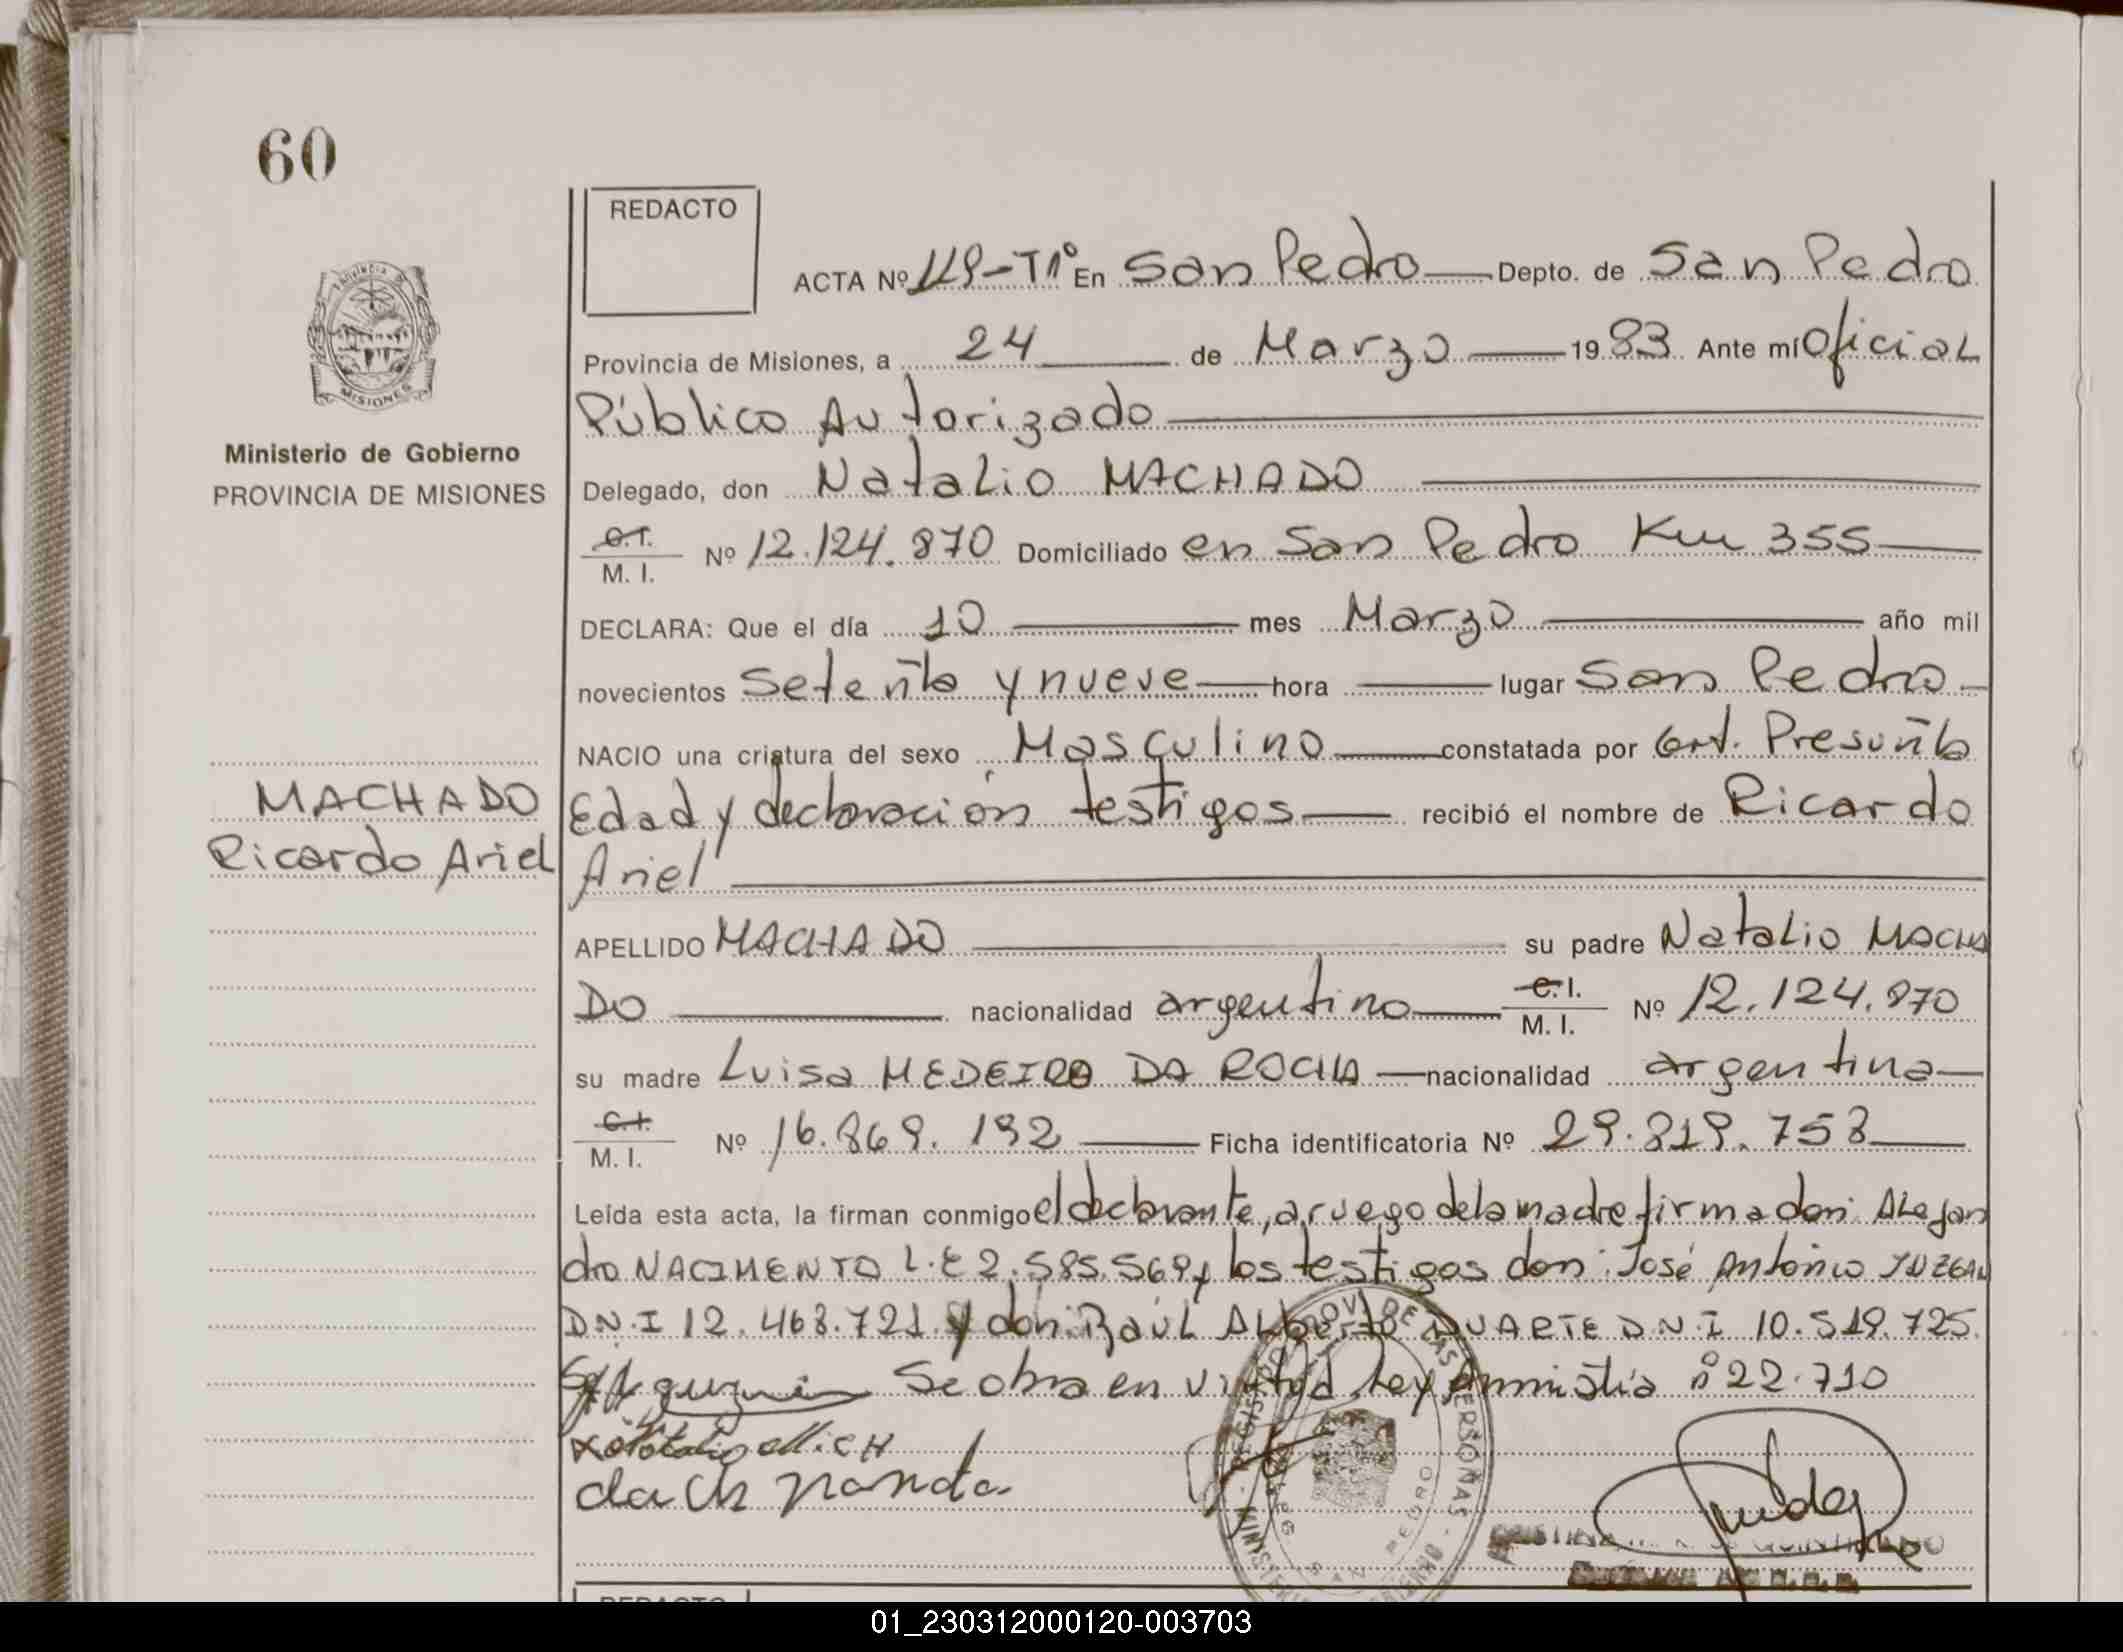 60
REDACTO
ACTA Nº 119-T1º En San Pedro Depto. de San Pedro
Provincia de Misiones, a 24 de Marzo 1983 Ante mí Oficial
Público Autorizado
Ministerio de Gobierno
PROVINCIA DE MISIONES
Delegado, don Natalio MACHADO
C.I.
M. I. Nº 12.124.870 Domiciliado en San Pedro Km 355
DECLARA: Que el día 10 mes Marzo año mil
novecientos Setenta y nueve hora lugar San Pedro
NACIO una criatura del sexo Masculino constatada por Cert. Presunta
MACHADO
Ricardo Ariel
Edad y declaración testigos recibió el nombre de Ricardo
Ariel
APELLIDO MACHADO su padre Natalio MACHA
DO nacionalidad argentino C.I.
M. I. Nº 12.124.870
su madre Luisa MEDEIRO DA ROCHA nacionalidad argentina
C.I.
M. I. Nº 16.869.192 Ficha identificatoria Nº 29.819.753
Leída esta acta, la firman conmigo el declarante, a ruego de la madre firma don: Alejan
dro NACIMENTO L.E 2.585.569 y los testigos don: José Antonio
D.N.I 12.468.721 y don: Raúl Alberto DUARTE D.N.I 10.519.725
Se obra en virtud Ley Amnistía nº 22.710
SAN PEDRO
REDACTO
01_230312000120-003703